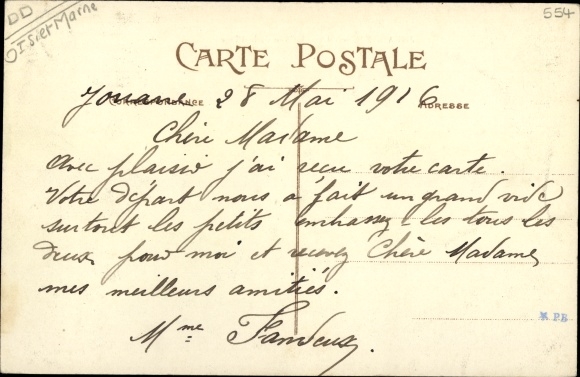 DD
554
CARTE POSTALE
CORRESPONDANCE
ADRESSE
Jouarre 28 Mai 1916
Chère Madame
Avec plaisir j'ai reçu votre carte.
Votre départ nous a fait un grand vide
surtout les petits embrassez-les tous les
deux pour moi et recevez Chère Madame
mes meilleurs amitiés.
Mme